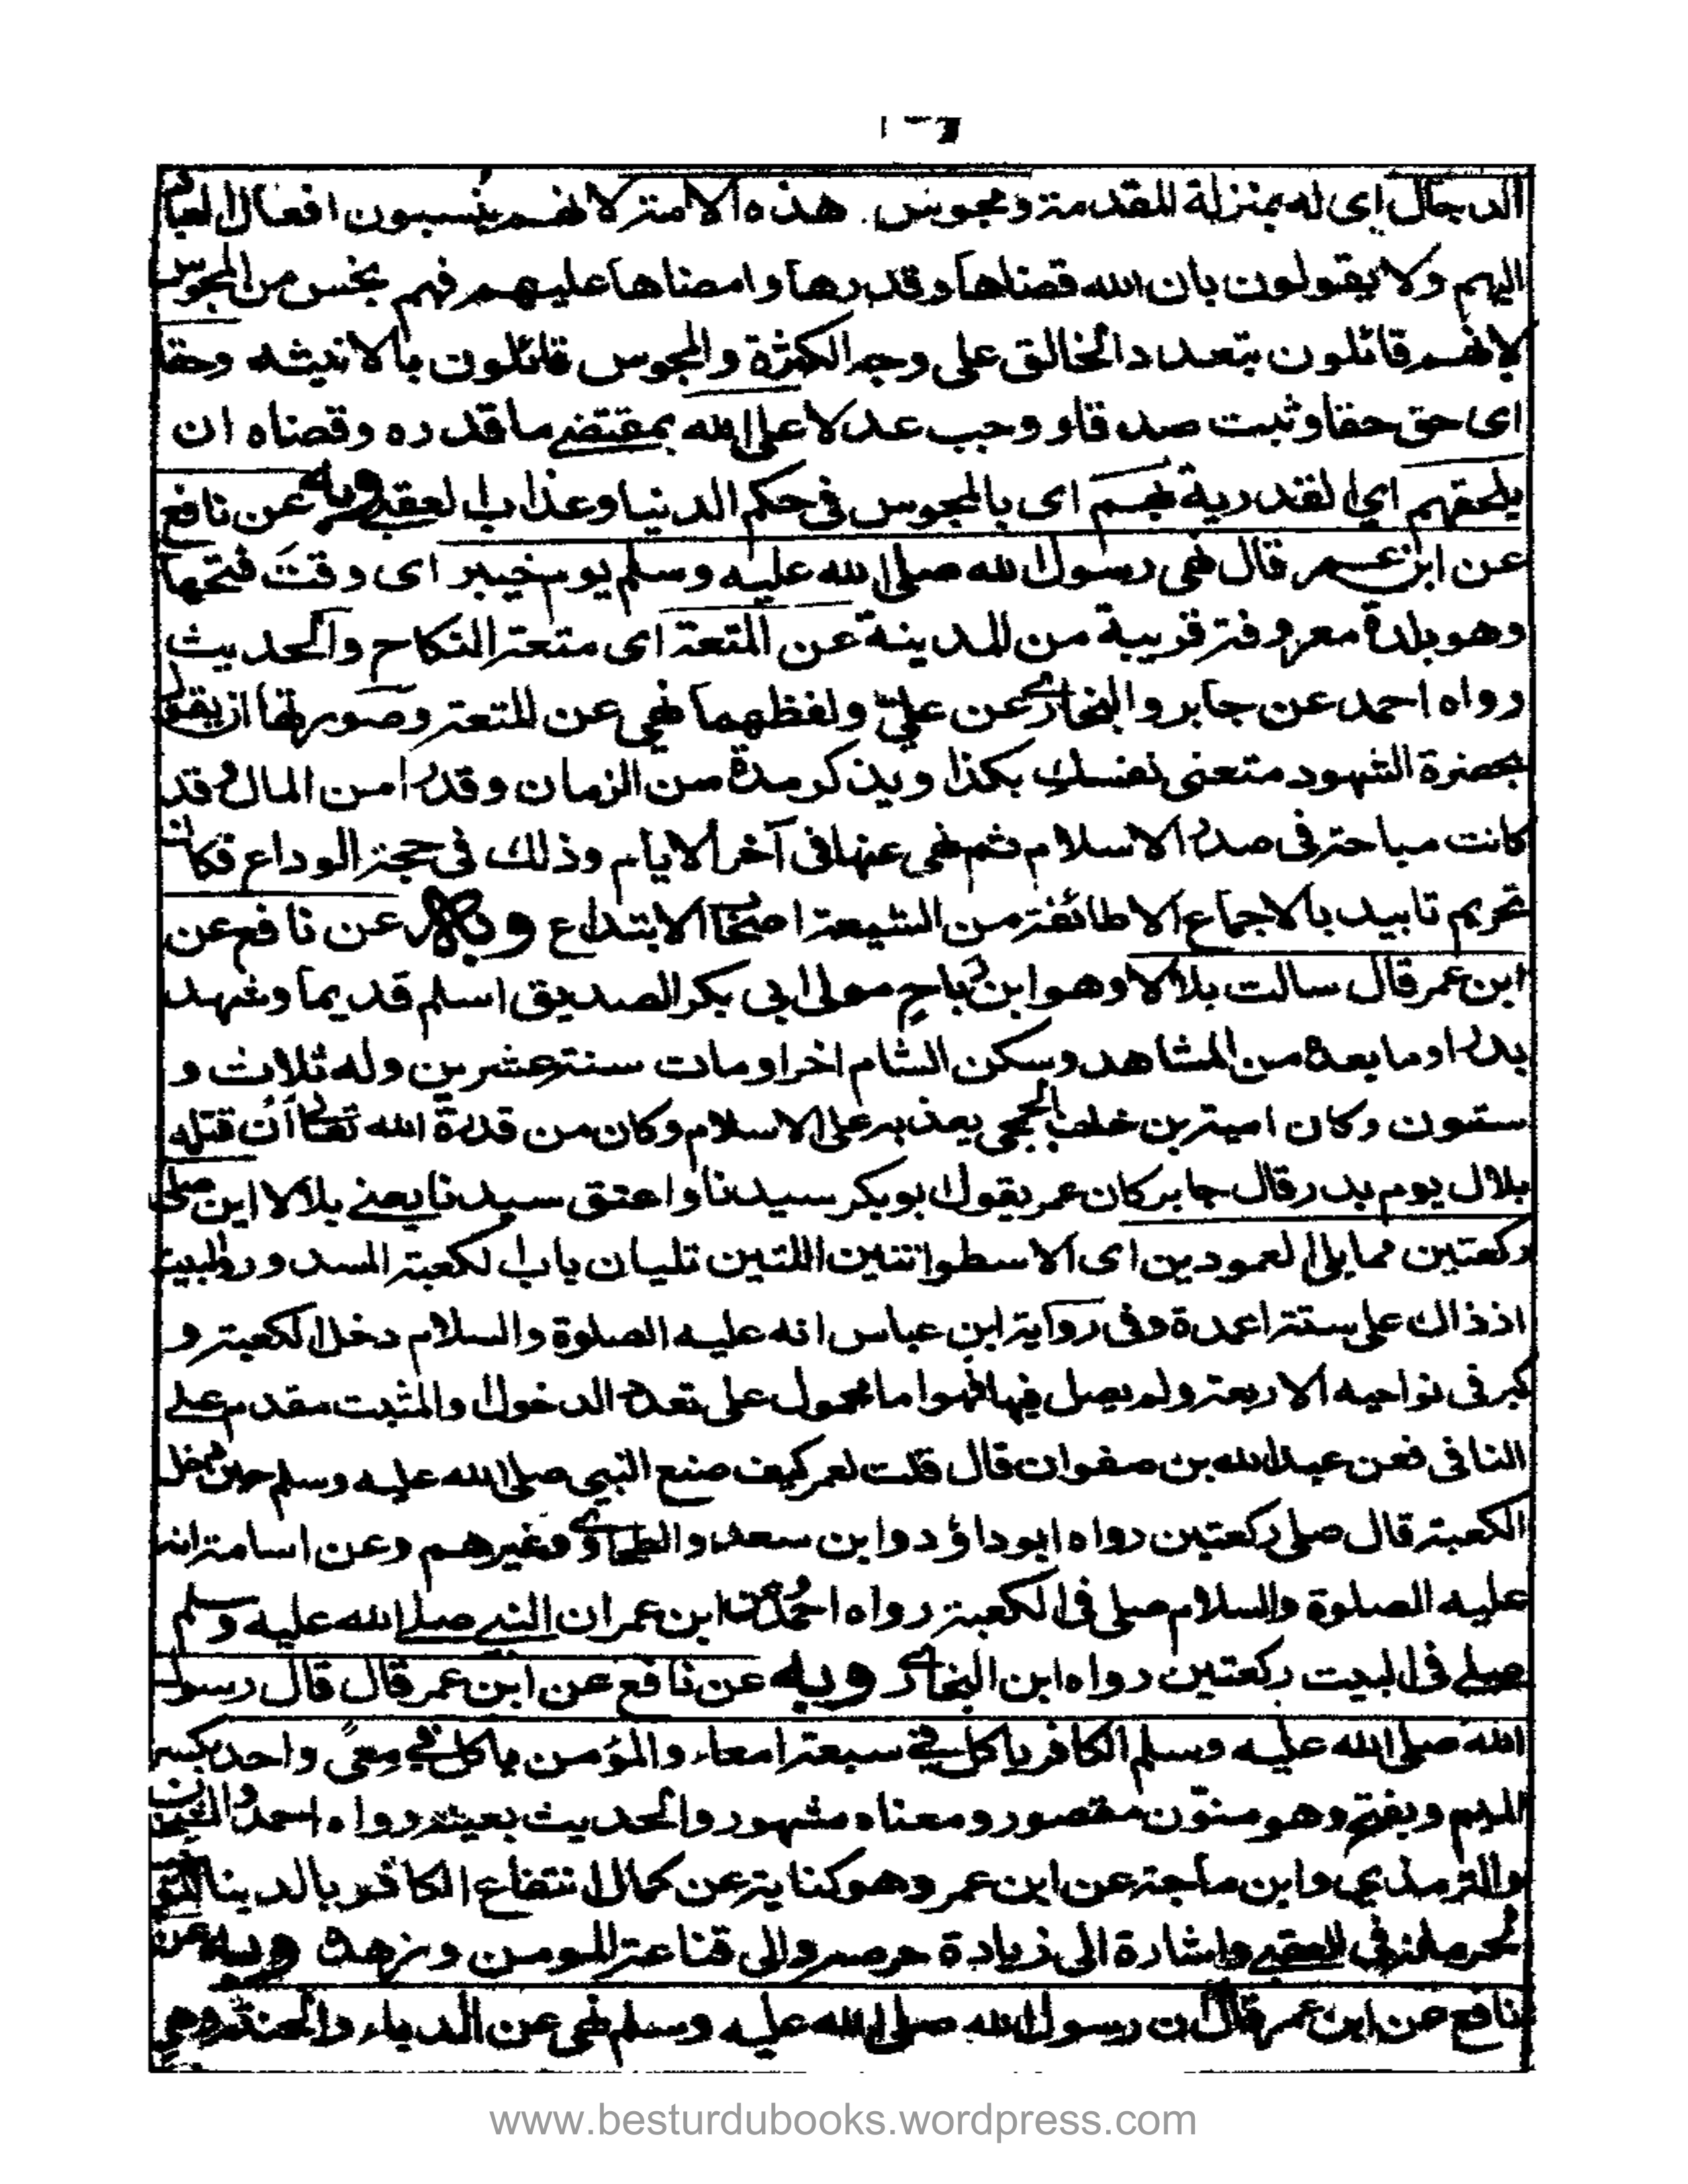 الدجال اى له بمنزلة المقدمة ومجوس هذه الامة لانهم ينسبون افعال العباد
اليهم ولا يقولون بان الله قضاها وقدرها وامضاها عليهم فهم بخس من المجوس
لانهم قائلون بتعدد الخالق على وجه الكثرة والمجوس قائلون بالاثنيثه وحقا
اى حق حقا وثبت صدقا ووجب عدلا على الله بمقتضى ما قدره وقضاه ان
يلحقهم اى القدرية بهم اى بالمجوس فى حكم الدنيا وعذاب العقبے وبه عن نافع
عن ابن عمر قال نهى رسول الله صلى الله عليه وسلم يوم خيبر اى وقت فتحها
وهو بلدة معروفة قريبة من المدينة عن المتعة اى متعة النكاح والحديث
رواه احمد عن جابر والبخارى عن على ولفظهما نهى عن المتعة وصورتها ان يقول
بحضرة الشهود متعنى نفسك بكذا ويذكر مدة من الزمان وقدرا من المال وقد
كانت مباحة فى صدر الاسلام ثم نهى عنها فى آخر الايام وذلك فى حجة الوداع فكان
تحريم تابيد بالاجماع الا طائفة من الشيعة اصحاب الابتداع وبه عن نافع عن
ابن عمر قال سالت بلالا وهو ابن رباح مولى ابى بكر الصديق اسلم قديما وشهد
بدرا وما بعده من المشاهد وسكن الشام اخرا ومات سنة عشرين وله ثلاث و
ستون وكان امية بن خلف الجمحى يعذبه على الاسلام وكان من قدرة الله تعالى ان قتله
بلال يوم بدر قال جابر كان عمر يقول ابو بكر سيدنا واعتق سيدنا يعنے بلالا اين صلى
ركعتين مما يلى العمودين اى الاسطوانتين اللتين تليان باب الكعبة المسدور والبيت
اذ ذاك على ستة اعمدة وفى رواية ابن عباس انه عليه الصلوة والسلام دخل الكعبة و
كبر فى نواحيه الاربعة ولم يصل فيها فهو اما محمول على تعدد الدخول والمثبت مقدم علے
النافى فعن عبد الله بن صفوان قال قلت لعمر كيف صنع النبى صلى الله عليه وسلم حين دخل
الكعبة قال صلى ركعتين رواه ابو داؤد وابن سعد والطحاوى وغيرهم وعن اسامة انه
عليه الصلوة والسلام صلى فى الكعبة رواه احمد وعن ابن عمر ان النبے صلے الله عليه وسلم
صلے فى البيت ركعتين رواه ابن البخارى وبه عن نافع عن ابن عمر قال قال رسول
الله صلى الله عليه وسلم الكافر ياكل فے سبعة امعاء والمؤمن ياكل فے معى واحد بكسر
الميم وبفتح وهو منوّن مقصور ومعناه مشهور والحديث بعينه رواه احمد والشيخان
والترمذي وابن ماجة عن ابن عمر وهو كناية عن كمال انتفاع الكافر بالدنيا
فى العقبے واشارة الى زيادة حرصه والى قناعة المومن وزهده وبه عن
نافع عن ابن عمر قال ان رسول الله صلى الله عليه وسلم نهى عن الدباء والحنتم وهى
www.besturdubooks.wordpress.com